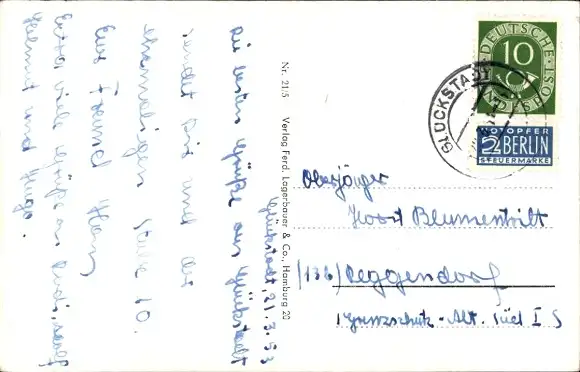 Glückstadt, 21.3.53
Die besten Grüße aus Glückstadt
sendet Dir und der
ehemaligen Stube 10.
Euer Freund Hans
Extra viele Grüße an Rudi,
Helmut und Hugo.
Nr. 215 Verlag Ferd. Lagerbauer & Co., Hamburg 20
DEUTSCHE POST
10
GLÜCKSTADT
NOTOPFER
2 BERLIN
STEUERMARKE
Oberjäger
Horst Blumentritt
(13b) Deggendorf
Grenzschutz-Abt. Süd I